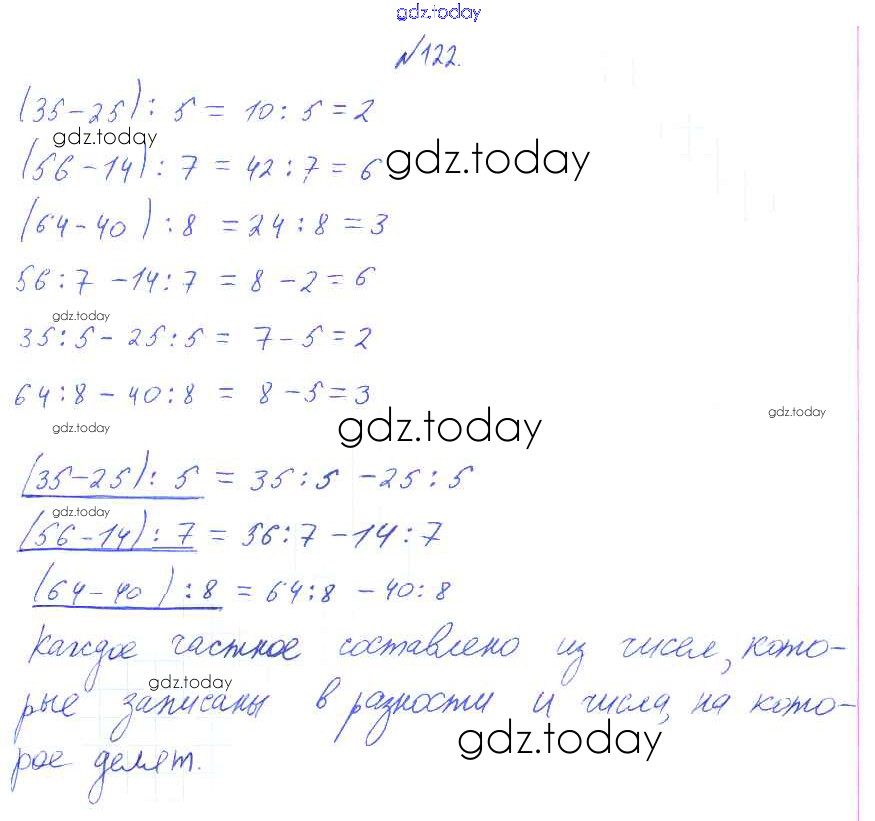 gdz.today
№122.
(35-25) : 5 = 10 : 5 = 2
gdz.today
(56-14) : 7 = 42 : 7 = 6 gdz.today
(64-40) : 8 = 24 : 8 = 3
56 : 7 - 14 : 7 = 8 - 2 = 6
gdz.today
35 : 5 - 25 : 5 = 7 - 5 = 2
64 : 8 - 40 : 8 = 8 - 5 = 3
gdz.today
gdz.today gdz.today
(35-25) : 5 = 35 : 5 - 25 : 5
gdz.today
(56-14) : 7 = 56 : 7 - 14 : 7
(64-40) : 8 = 64 : 8 - 40 : 8
Каждое частное составлено из чисел, кото-
gdz.today
рые записаны в разности и числа, на кото-
gdz.today
рое делят.